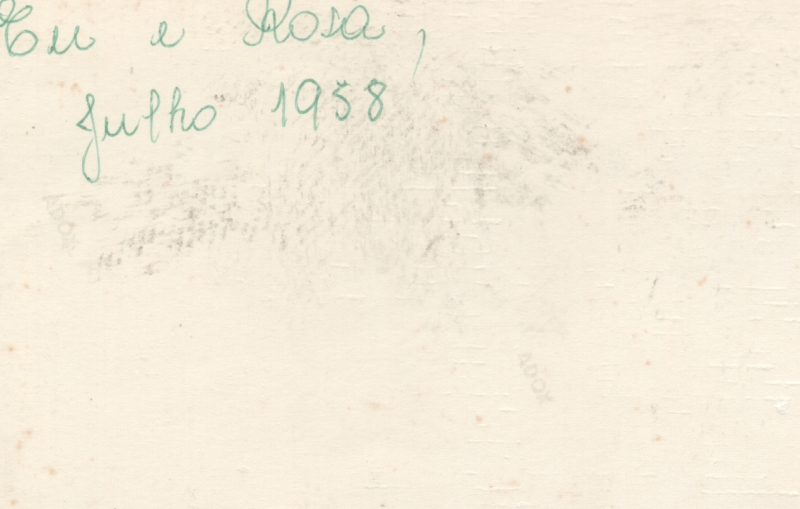 Eu e Rosa,
Julho 1958
ADOX
ADOX